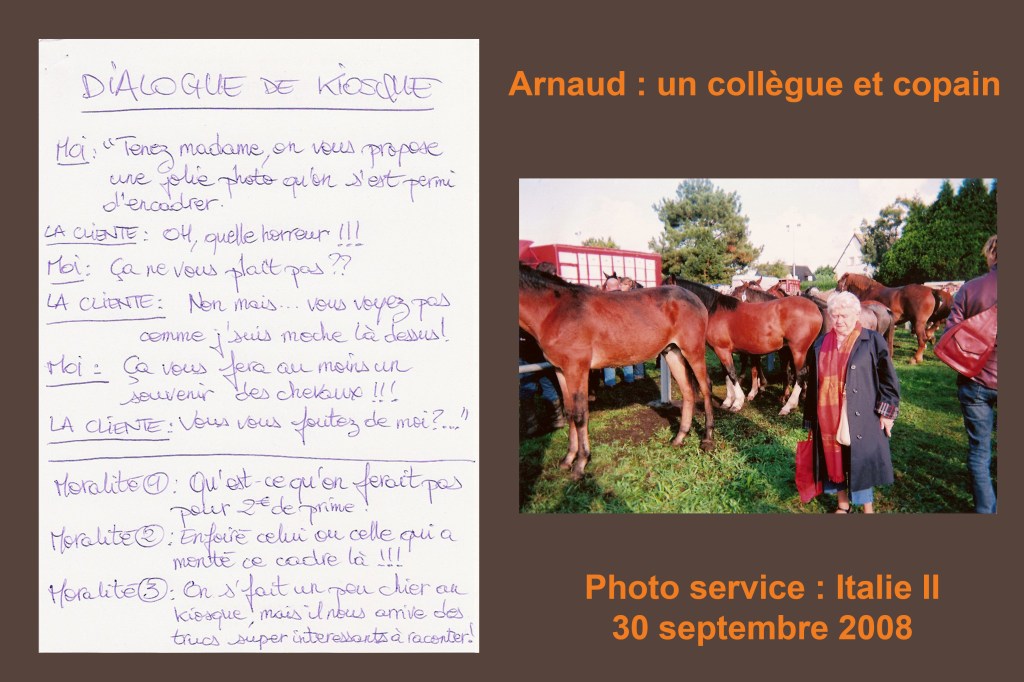 DIALOGUE DE KIOSQUE
Moi : "Tenez madame, on vous propose
une jolie photo qu'on s'est permi
d'encadrer.
LA CLIENTE : OH, quelle horreur !!!
Moi : Ça ne vous plaît pas ??
LA CLIENTE : Non mais... vous voyez pas
comme j'suis moche là dessus!
Moi : Ça vous fera au moins un
souvenir des chevaux !!!
LA CLIENTE : Vous vous foutez de moi ?..."
Moralité ① : Qu'est-ce qu'on ferait pas
pour 2€ de prime !
Moralité ② : Enfoiré celui ou celle qui a
monté ce cadre là !!!
Moralité ③ : On s'fait un peu chier au
kiosque, mais il nous arrive des
trucs super interessants à raconter!
Arnaud : un collègue et copain
Photo service : Italie II
30 septembre 2008